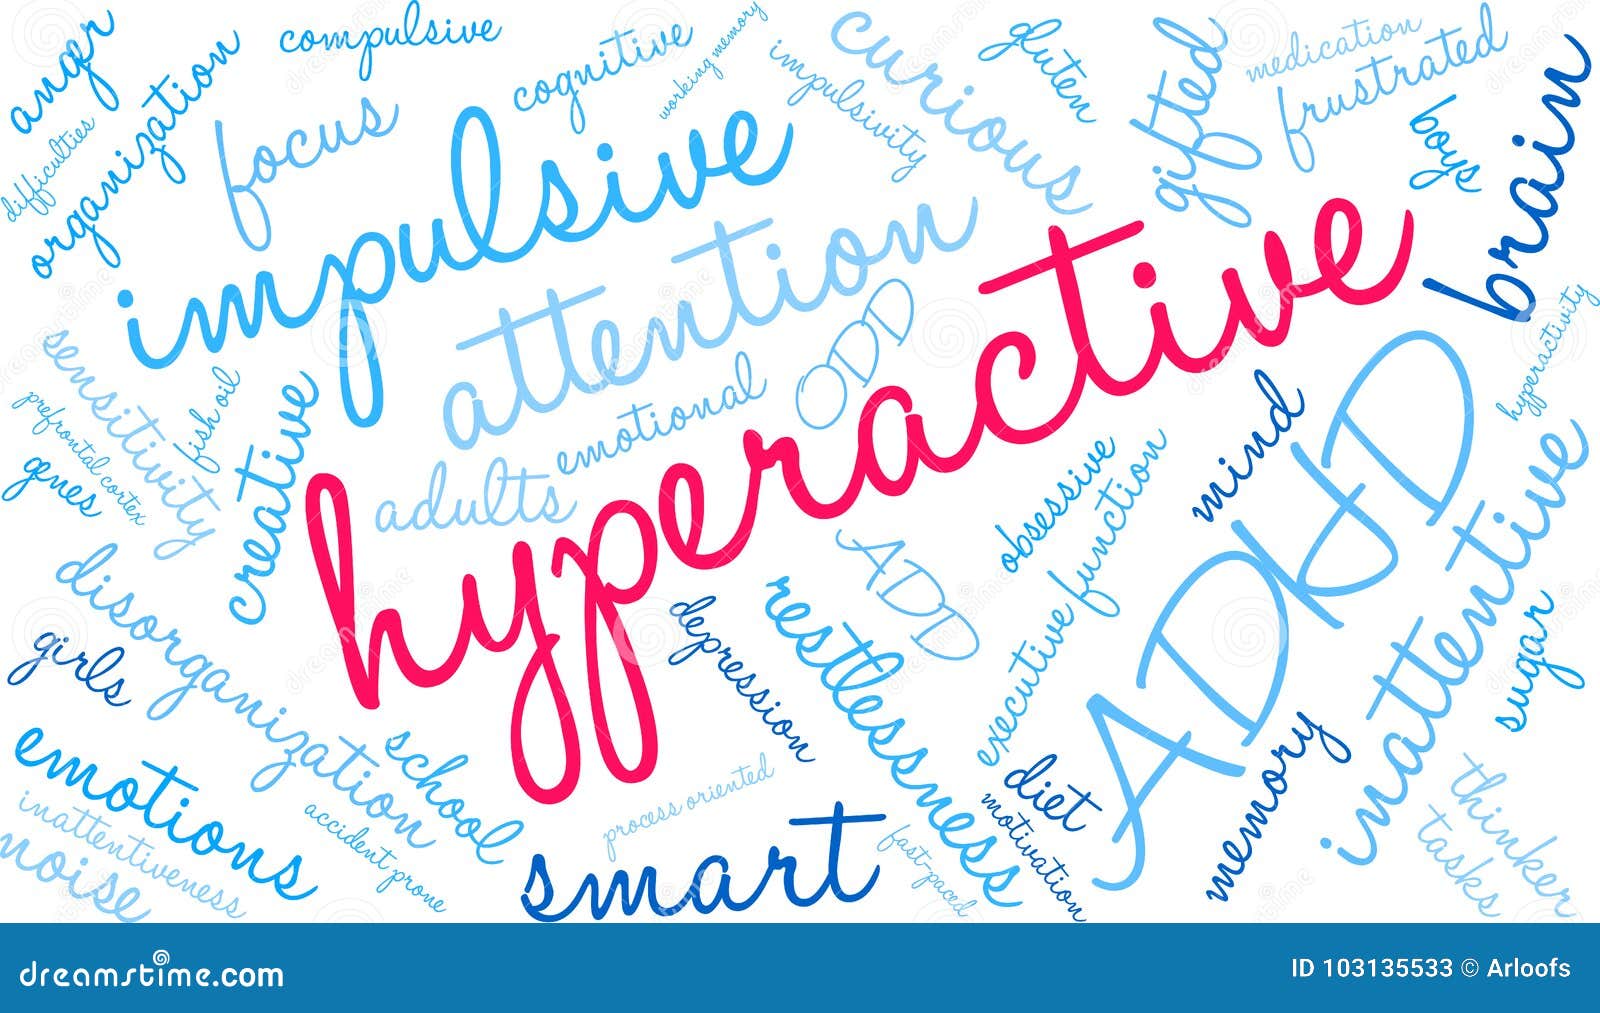 anger
compulsive
cognitive
working memory
curious
gluten
gifted
medication
frustrated
difficulties
organization
focus
impulsive
impulsivity
boys
brain
attention
ODD
hyperactive
hyperactivity
sensitivity
fish oil
prefrontal cortex
genes
creative
adults
emotional
mind
ADHD
obsessive
executive function
inattentive
ADD
disorganization
girls
depression
restlessness
sugar
emotions
school
process oriented
diet
motivation
memory
thinker
tasks
inattentiveness
noise
accident prone
smart
fast-paced
dreamstime.com
ID 103135533 © Arloofs